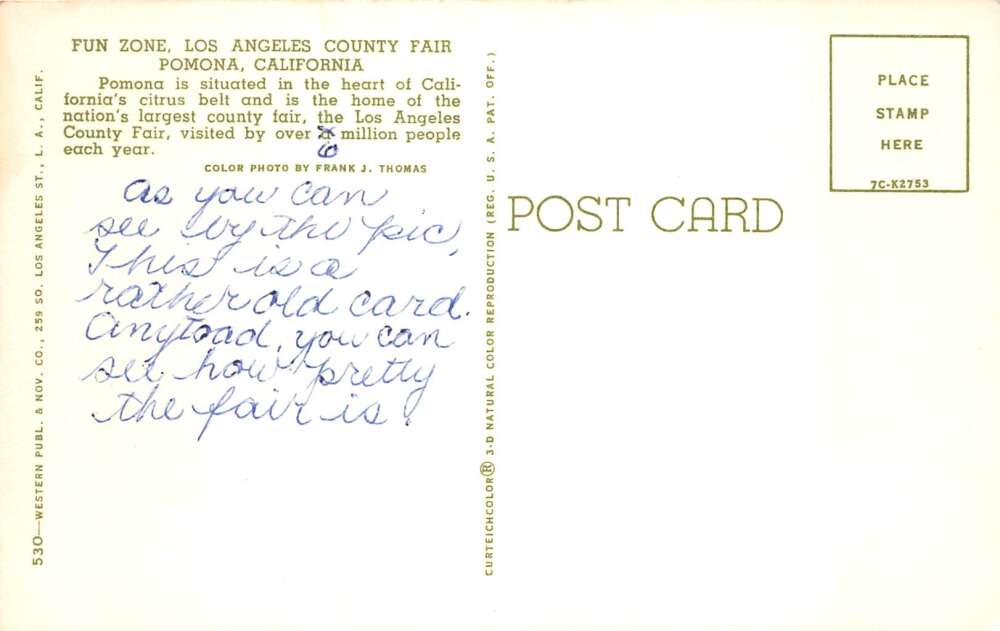 FUN ZONE, LOS ANGELES COUNTY FAIR
POMONA, CALIFORNIA
Pomona is situated in the heart of Cali-
fornia's citrus belt and is the home of the
nation's largest county fair, the Los Angeles
County Fair, visited by over a million people
6
each year.
COLOR PHOTO BY FRANK J. THOMAS
As you can
see by the pic,
This is a
rather old card.
Anytoad, you can
see how pretty
the fair is!
530—WESTERN PUBL. & NOV. CO., 259 SO. LOS ANGELES ST., L. A., CALIF.
CURTEICHCOLOR® 3-D NATURAL COLOR REPRODUCTION (REG. U. S. A. PAT. OFF.)
POST CARD
PLACE
STAMP
HERE
7C-K2753